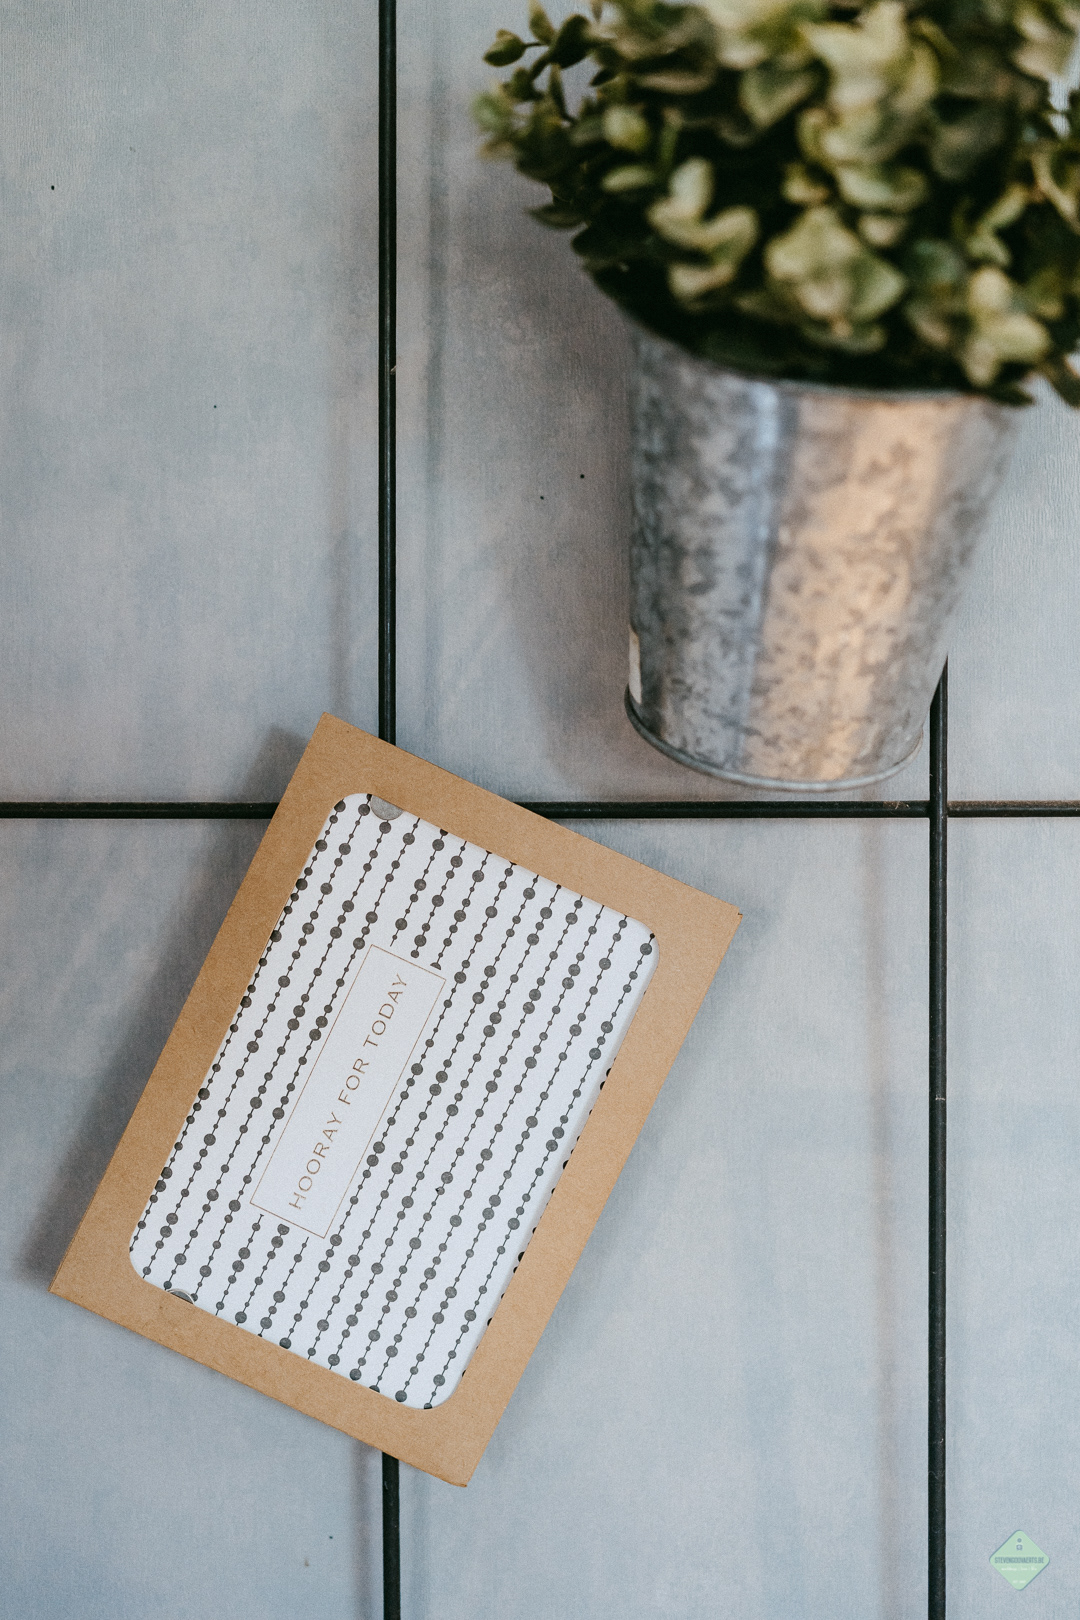 HOORAY FOR TODAY